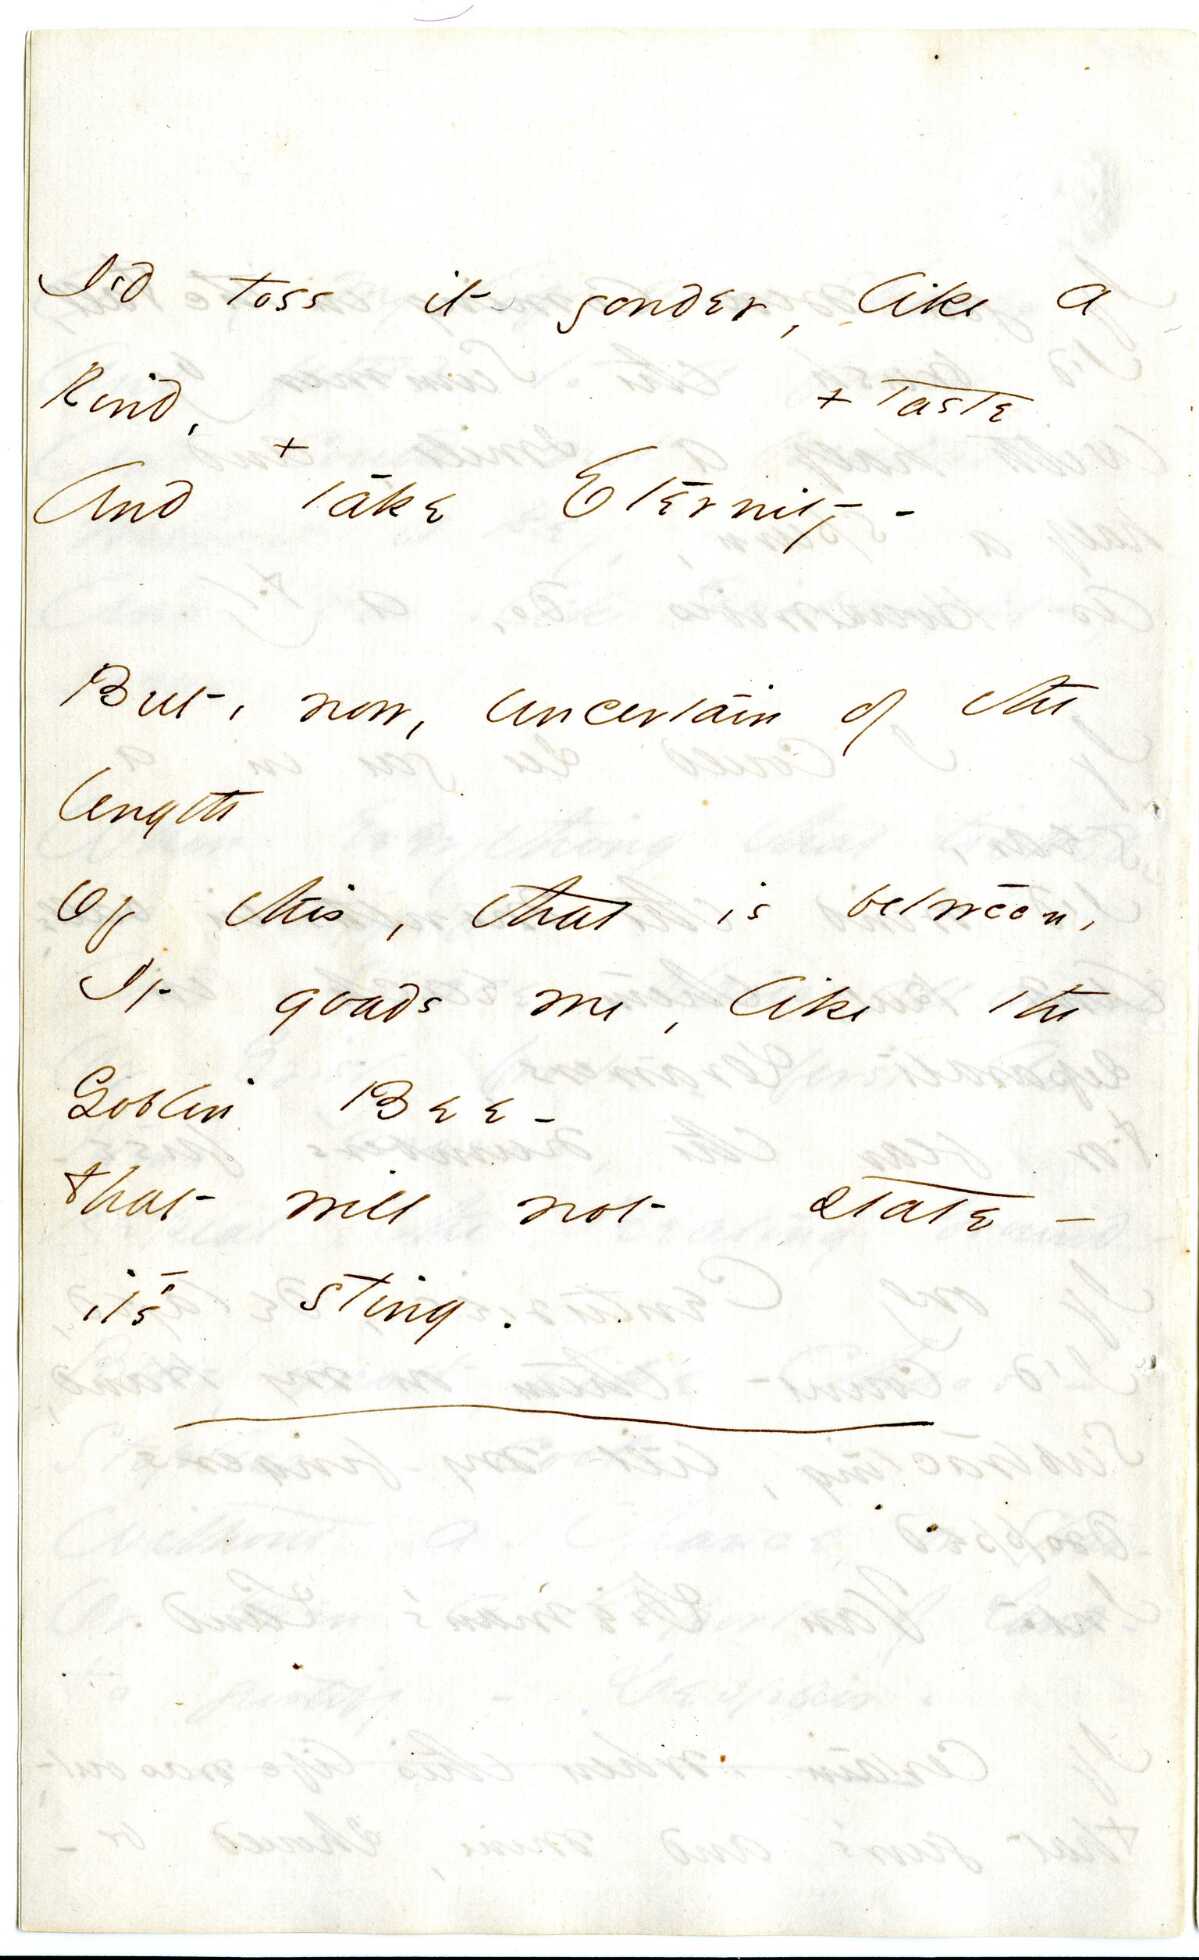 I'd toss it yonder, like a
Rind,
+ taste
And + take Eternity -
But, now, uncertain of the
length
Of this, that is between,
It goads me, like the
Goblin Bee -
That will not state -
it's sting.